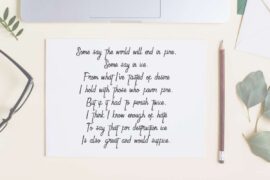 Some say the world will end in fire,
Some say in ice.
From what I've tasted of desire
I hold with those who favor fire.
But if it had to perish twice,
I think I know enough of hate
To say that for destruction ice
Is also great and would suffice.